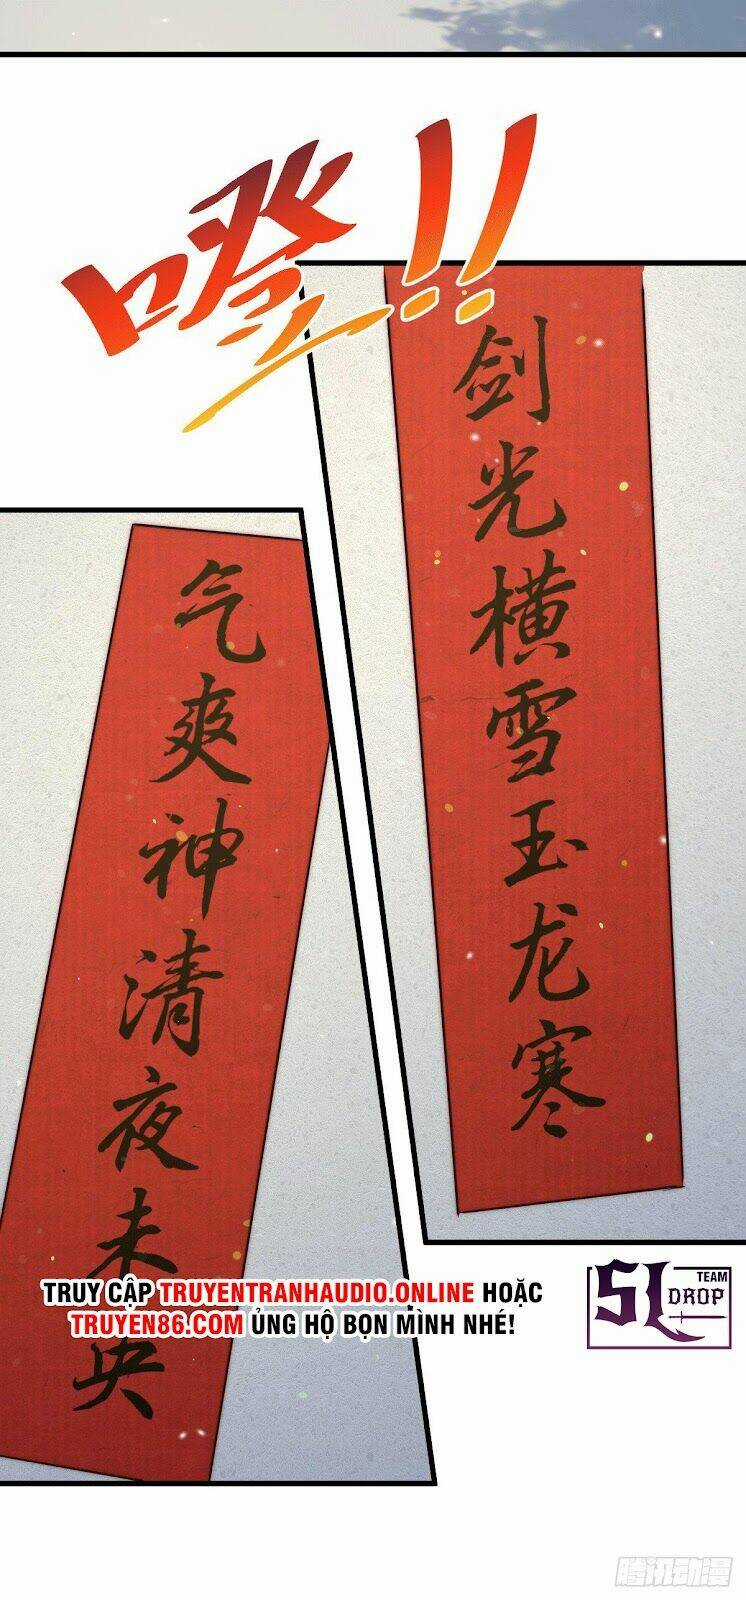 噔!!
剑光横雪玉龙寒
气爽神清夜未央
TRUY CẬP TRUYENTRANHAUDIO.ONLINE HOẶC
TRUYEN86.COM ỦNG HỘ BỌN MÌNH NHÉ!
SL TEAM
DROP
腾讯动漫